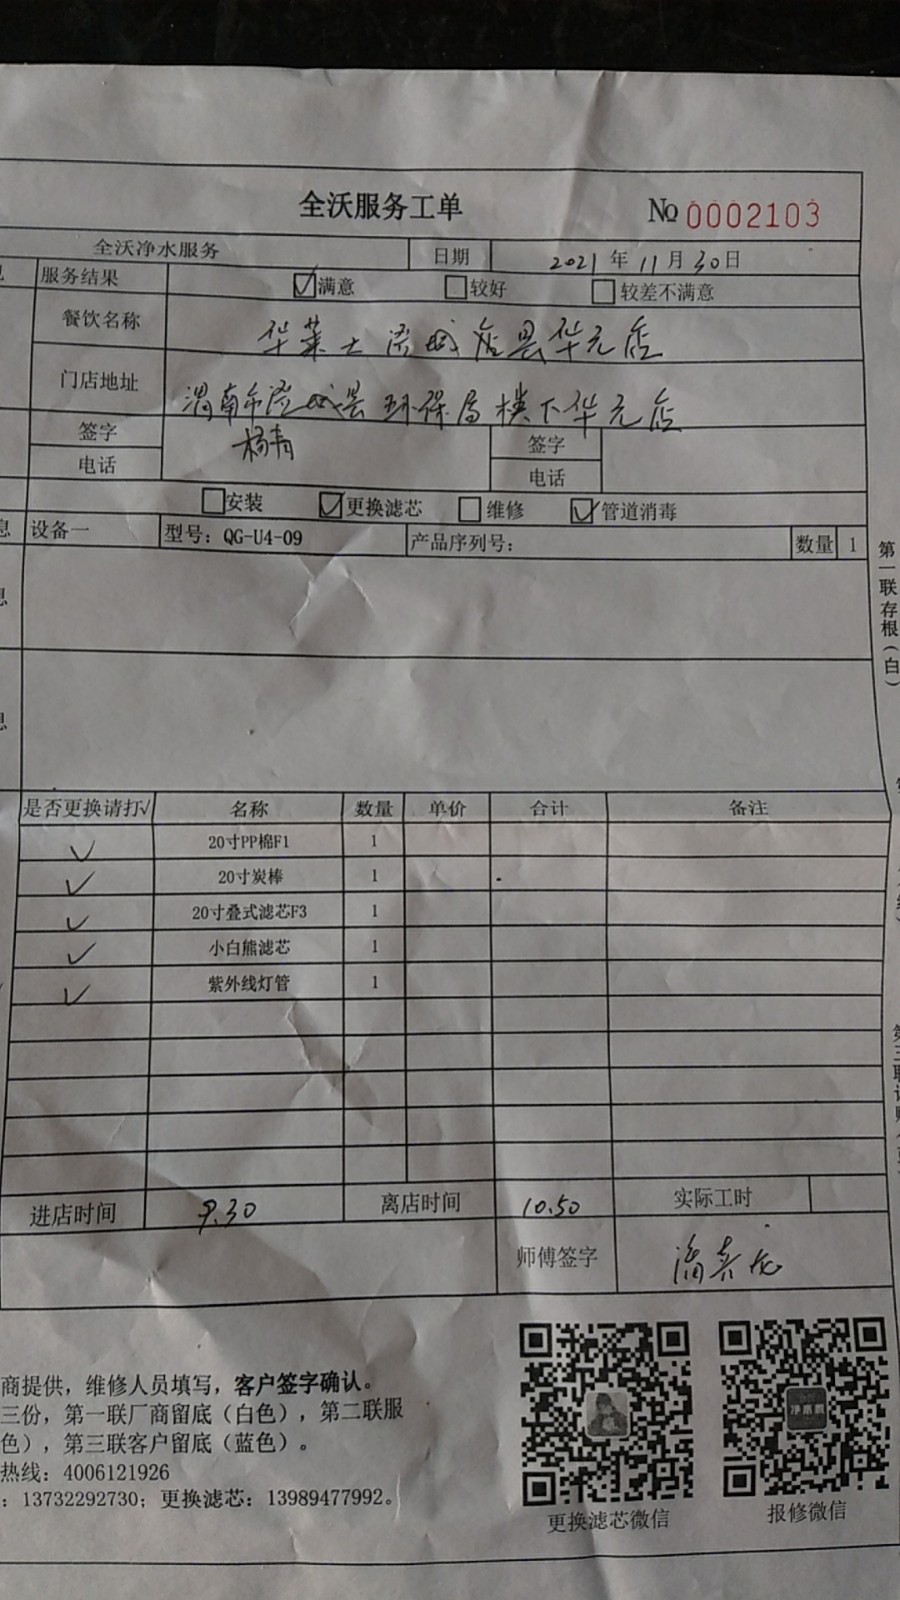 全沃服务工单 № 0002103
全沃净水服务 日期 2021年11月30日
服务结果 ☑满意 □较好 □较差不满意
餐饮名称 华莱士澄城店县华元店
门店地址 渭南市澄城县环保局楼下华元店
签字 杨青 签字
电话 电话
□安装 ☑更换滤芯 □维修 ☑管道消毒
息 设备一 型号：QG-U4-09 产品序列号： 数量 1
息
息
第一联存根（白）
是否更换请打√ 名称 数量 单价 合计 备注
✓ 20寸PP棉F1 1
✓ 20寸炭棒 1
✓ 20寸叠式滤芯F3 1
✓ 小白熊滤芯 1
✓ 紫外线灯管 1
进店时间 9.30 离店时间 10.50 实际工时
师傅签字
商提供，维修人员填写，客户签字确认。
三份，第一联厂商留底（白色），第二联服
色），第三联客户留底（蓝色）。
热线：4006121926
：13732292730；更换滤芯：13989477992。
更换滤芯微信 报修微信